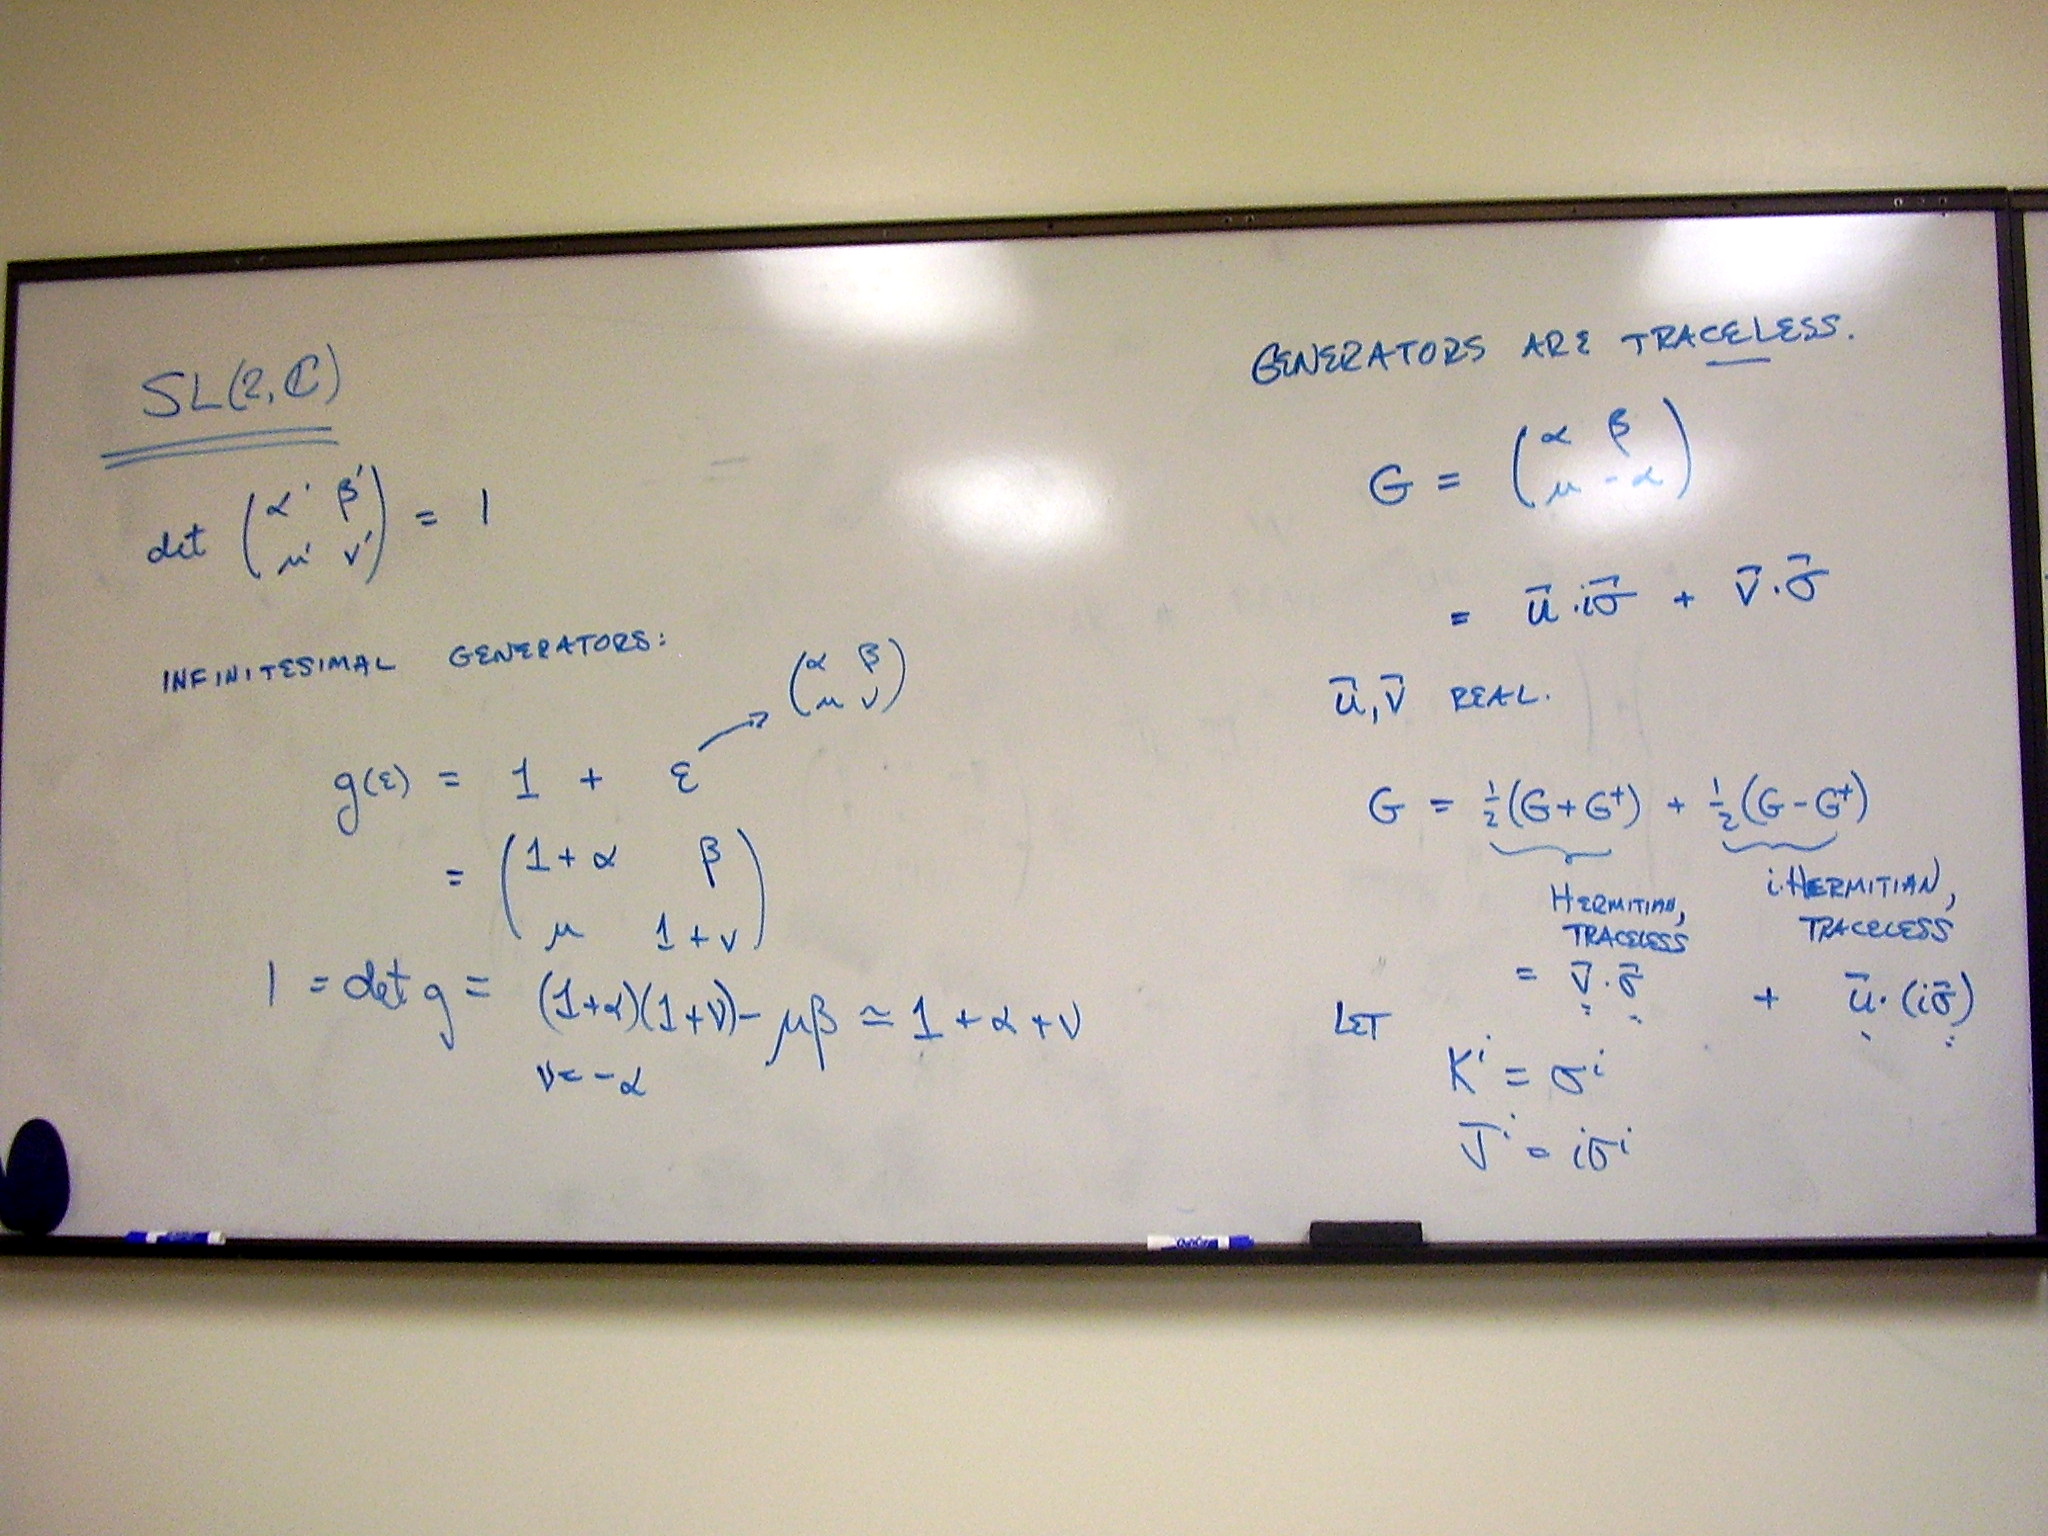 SL(2,ℂ)
det (α' β'
μ' ν') = 1
INFINITESIMAL GENERATORS:
(α β
μ ν)
g(ε) = 1 + ε
= (1+α β
μ 1+ν)
1 = det g = (1+α)(1+ν)- μβ ≃ 1 + α + ν
ν = -α
GENERATORS ARE TRACELESS.
G = (α β
μ -α)
= u⃗ · iσ⃗ + v⃗ · σ⃗
u⃗, v⃗ REAL.
G = ½(G+G⁺) + ½(G-G⁺)
HERMITIAN, TRACELESS
i·HERMITIAN, TRACELESS
= v⃗ · σ⃗ + u⃗ · (iσ⃗)
LET
Kⁱ = σⁱ
Jⁱ = iσⁱ